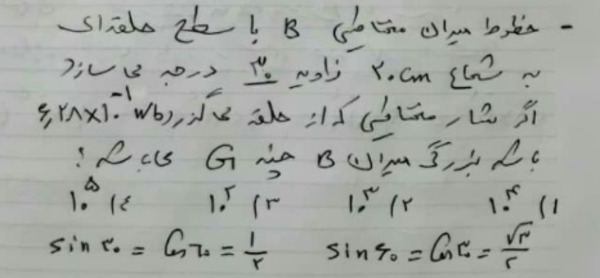 - خطوط میدان مغناطیسی B با سطح حلقه‌ای
به شعاع ۲۰cm زاویه ۳۰ درجه می سازد
اگر شار مغناطیسی که از حلقه می گذرد ۶٫۲۸×۱۰^-۱ wb
باشد بزرگی میدان B چند G می باشد؟
۱) ۱۰^۴ ۲) ۱۰^۳ ۳) ۱۰^۲ ۴) ۱۰^۵
sin ۳۰ = Cos ۶۰ = ۱/۲ sin ۶۰ = Cos ۳۰ = √۳/۲